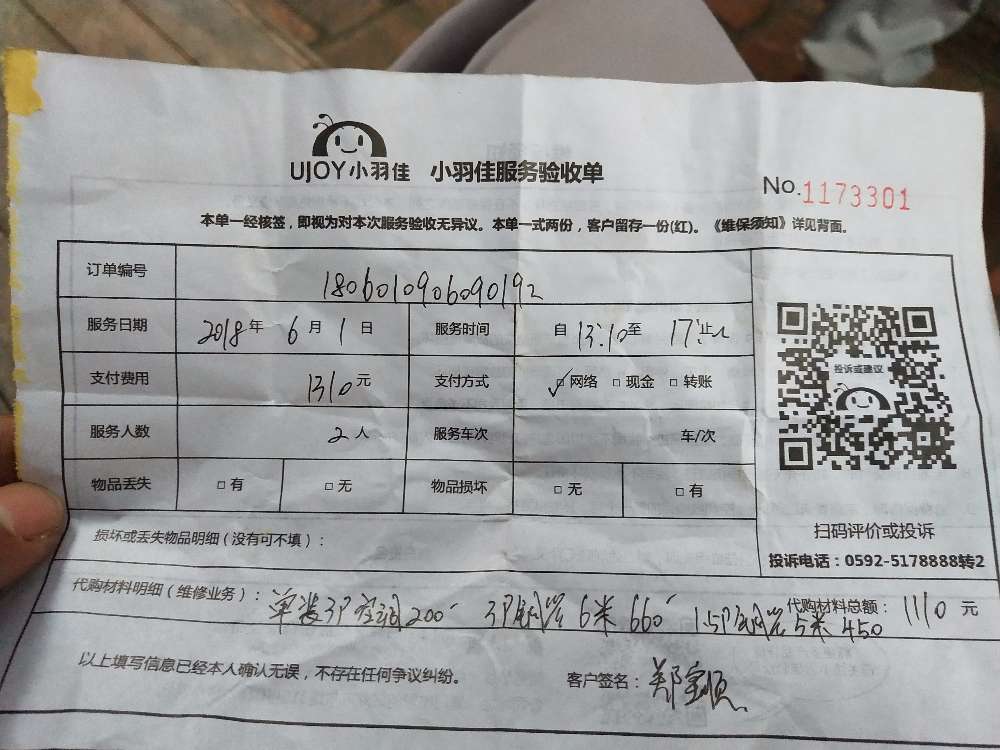 UJOY小羽佳 小羽佳服务验收单
No.1173301
本单一经核签，即视为对本次服务验收无异议。本单一式两份，客户留存一份(红)。《维保须知》详见背面。
订单编号 1806010906090192
服务日期 2018年 6月 1日 服务时间 自13:10至 17:止
支付费用 1310元 支付方式 ☑网络 □现金 □转账
投诉或建议
服务人数 2人 服务车次 车/次
物品丢失 □有 □无 物品损坏 □无 □有
扫码评价或投诉
损坏或丢失物品明细（没有可不填）：
投诉电话：0592-5178888转2
代购材料明细（维修业务）：单装3P空调200 3P铜管6米660 1.5P铜管5米450 代购材料总额：1110元
以上填写信息已经本人确认无误，不存在任何争议纠纷。 客户签名：郑宝顺